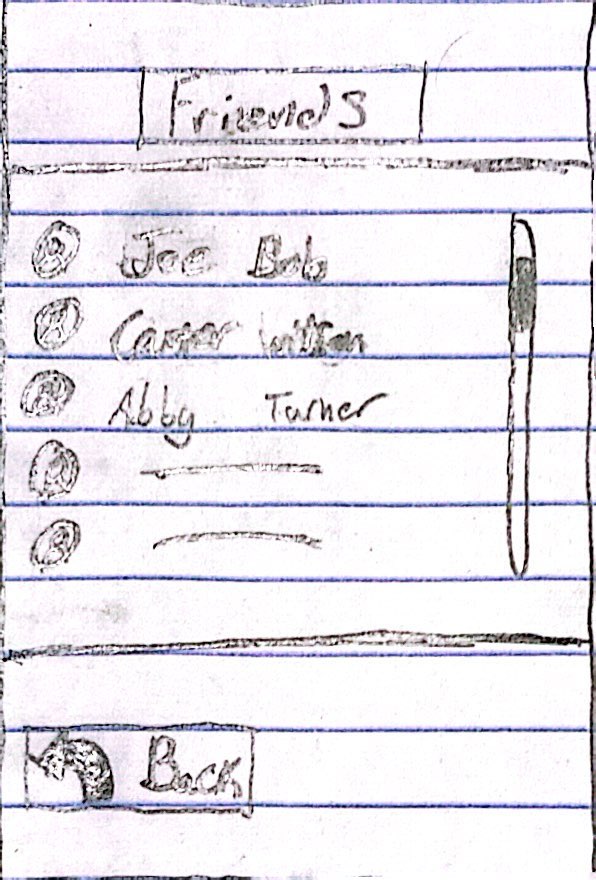 Friends
Joe Bob
Carter
Abby Turner
Back